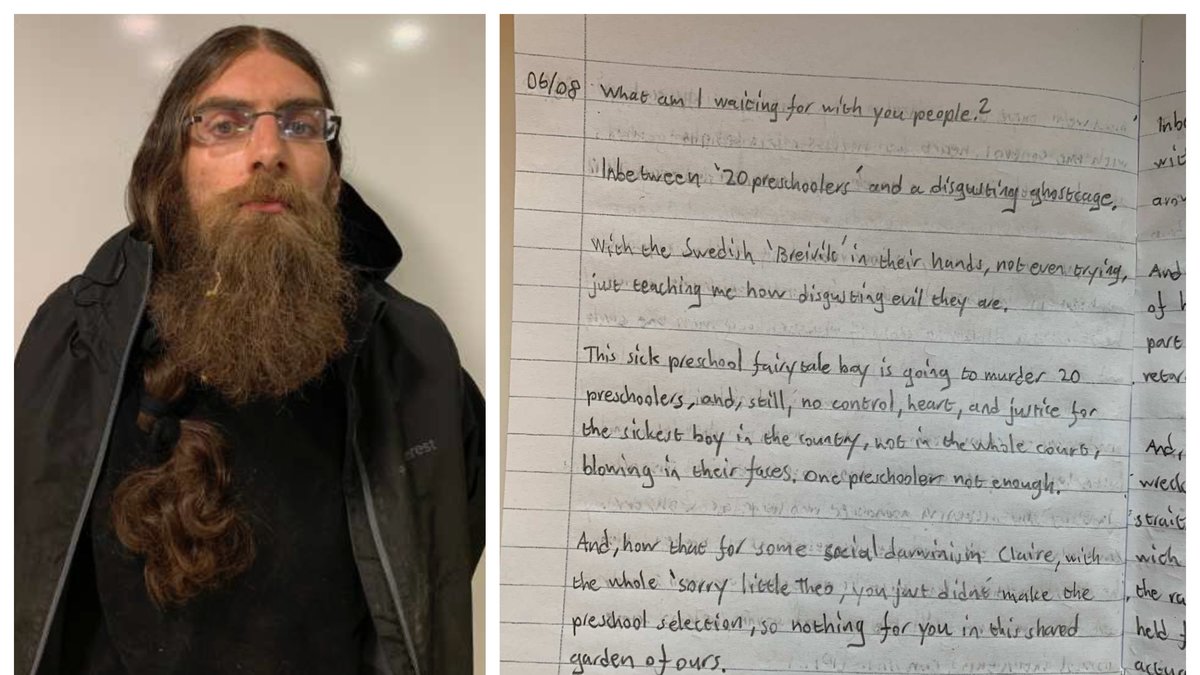 erest
06/08 What am I waiting for with you people.?
Inbetween '20 preschoolers' and a disgusting ghostcage.
With the Swedish 'Breivik' in their hands, not even trying,
just teaching me how disgusting evil they are.
This sick preschool fairytale boy is going to murder 20
preschoolers, and, still, no control, heart, and justice for
the sickest boy in the country, not in the whole court,
blowing in their faces. One preschooler not enough.
And, how that for some social darwinism Claire, with
the whole 'sorry little Theo, you just didn't make the
preschool selection, so nothing for you in this shared
garden of ours.
Inbe
wit
arou
And
of h
part
retar
And,
wreck
strait
wich
the ra
held f
actu